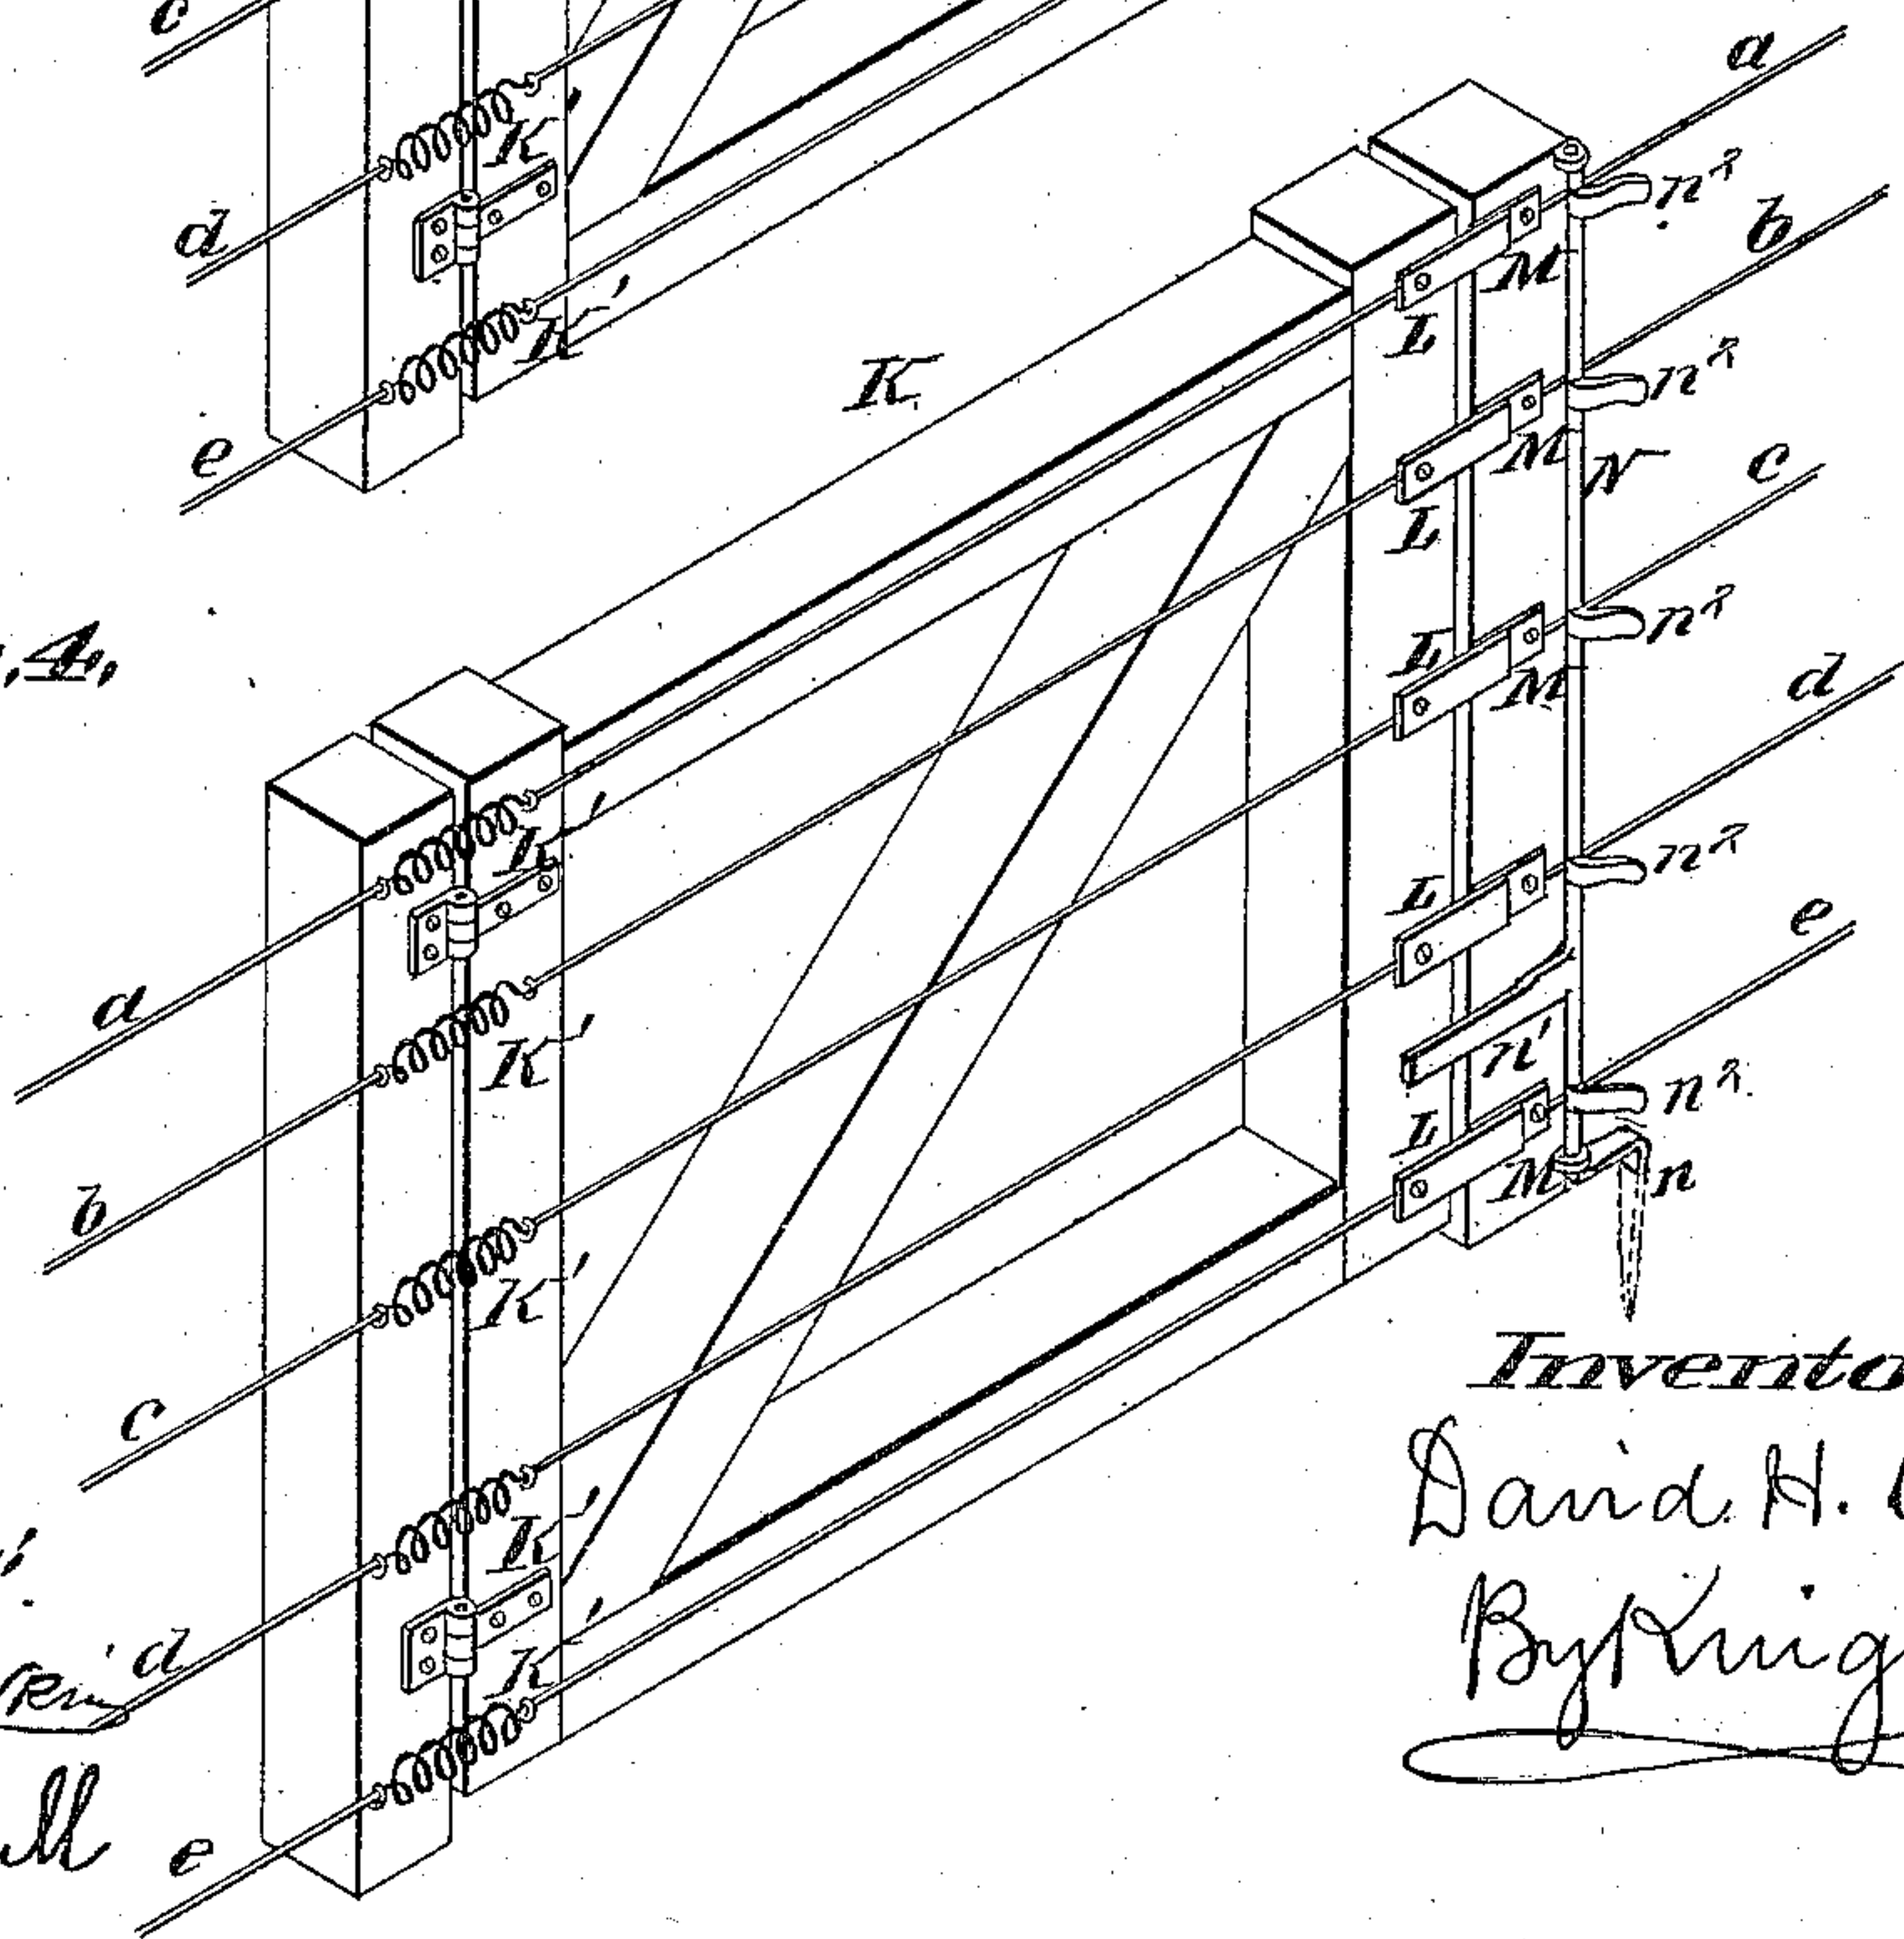 c
a
n²
d
K'
b
M
L
K'
K
n²
e
M
N
c
L
n²
4,
L
M
d
K'
n²
L
e
a
n'
K'
n²
L
b
M
n
K'
Invento
c
David H.
K'
By Knig
d
K'
e